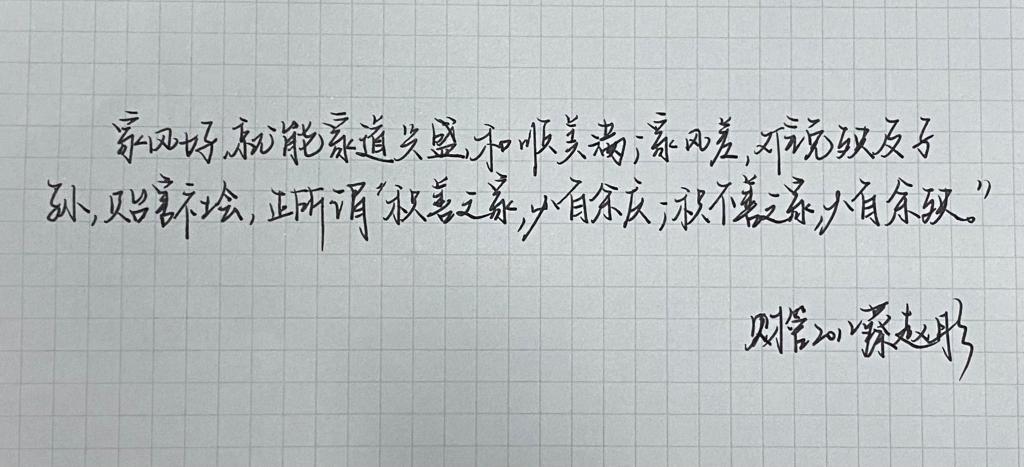 家风好,就能家道兴盛,和顺美满;家风差,难免殃及子
孙,贻害社会,正所谓“积善之家,必有余庆;积不善之家,必有余殃。”
财管2012蔡赵彤